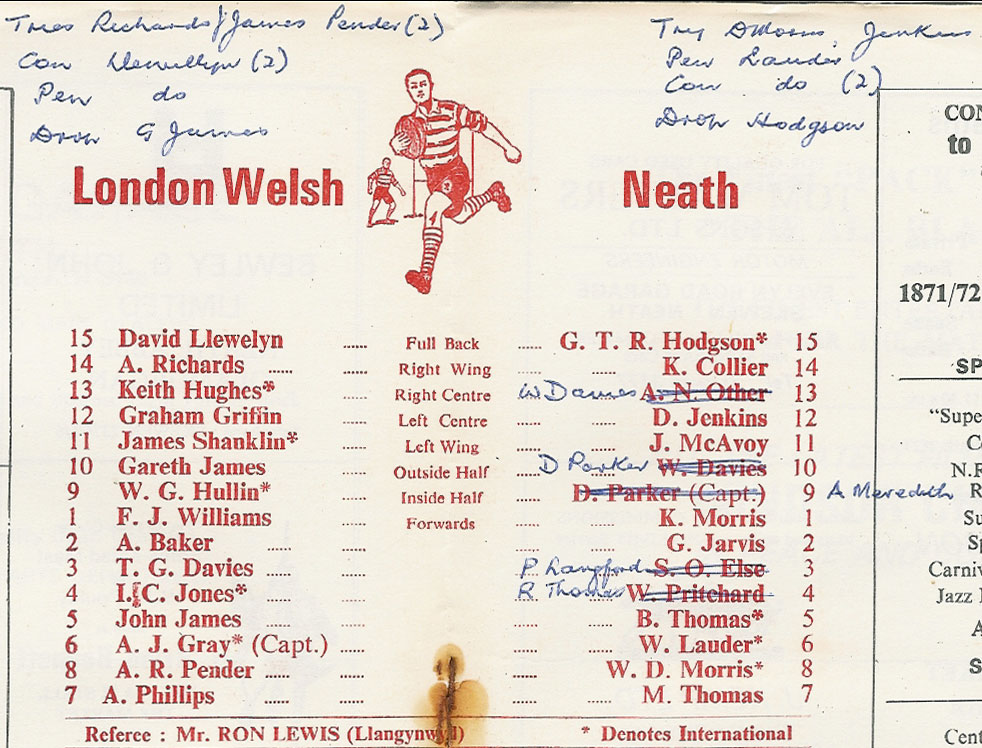 Tries Richards/James Pender (2)
Con Llewellyn (2)
Pen do
Drop G James
Try D Morris, Jenkins
Pen Lauder
Con do (2)
Drop Hodgson
London Welsh
Neath
15 David Llewelyn ...... Full Back ...... G. T. R. Hodgson* 15
14 A. Richards ...... ...... Right Wing ...... ...... K. Collier 14
13 Keith Hughes* ...... Right Centre W Davies A. N. Other 13
12 Graham Griffin ...... Left Centre ...... ...... D. Jenkins 12
11 James Shanklin* ...... Left Wing ...... ...... J. McAvoy 11
10 Gareth James ...... Outside Half D Parker ...... W. Davies 10
9 W. G. Hullin* ...... Inside Half ...... D. Parker (Capt.) 9 A Meredith
1 F. J. Williams ...... Forwards ...... ...... K. Morris 1
2 A. Baker ...... ...... ...... ...... G. Jarvis 2
3 T. G. Davies ...... ...... P Langford S. O. Else 3
4 I. C. Jones* ...... ...... R Thomas ...... W. Pritchard 4
5 John James ...... ...... ...... ...... B. Thomas* 5
6 A. J. Gray* (Capt.) ...... ...... ...... W. Lauder* 6
8 A. R. Pender ...... ...... ...... W. D. Morris* 8
7 A. Phillips ...... ...... ...... ...... M. Thomas 7
Referee : Mr. RON LEWIS (Llangynwyd)
* Denotes International
CON
to
1871/72
SP
"Supe
C
N.R
R
Su
Sp
Carniv
Jazz
A
S
Cent